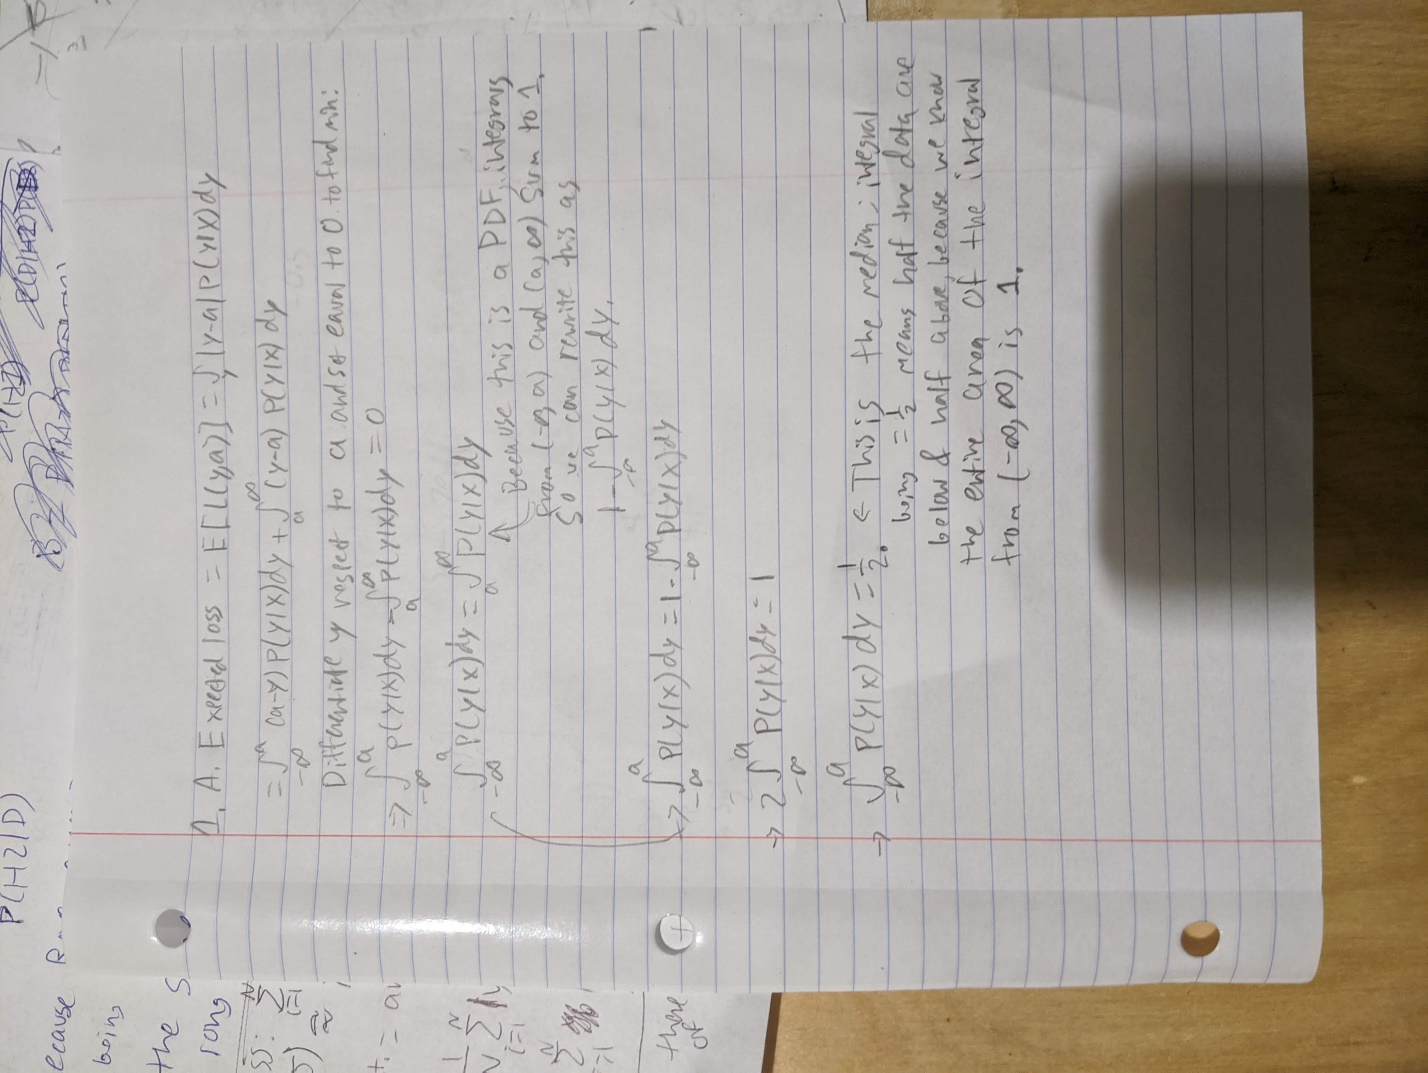 1. A. Expected loss = E[L(y,a)] = ∫y |y-a| P(y|x) dy
= ∫-∞^a (a-y) P(y|x) dy + ∫a^∞ (y-a) P(y|x) dy
Differentiate y respect to a and set equal to 0 to find min:
⇒ ∫-∞^a P(y|x) dy - ∫a^∞ P(y|x) dy = 0
∫-∞^a P(y|x) dy = ∫a^∞ P(y|x) dy
↑ Because this is a PDF, integrals
from (-∞, a) and (a, ∞) sum to 1.
So we can rewrite this as
1 - ∫-∞^a P(y|x) dy.
→ ∫-∞^a P(y|x) dy = 1 - ∫-∞^a P(y|x) dy
→ 2 ∫-∞^a P(y|x) dy = 1
→ ∫-∞^a P(y|x) dy = 1/2. ← This is the median; integral
being = 1/2 means half the data are
below & half above, because we know
the entire area of the integral
from (-∞, ∞) is 1.
P(H2|D)
being
the S
i=1
N
i=1
there
of